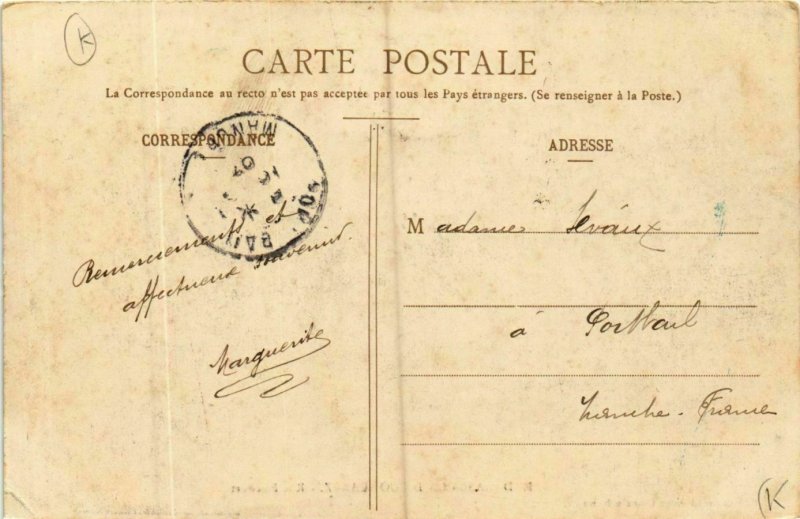 K
CARTE POSTALE
La Correspondance au recto n'est pas acceptée par tous les Pays étrangers. (Se renseigner à la Poste.)
CORRESPONDANCE
ADRESSE
Remerciements et
affectueux souvenir.
Marguerite
Madame
à Portbail
Manche. France
K